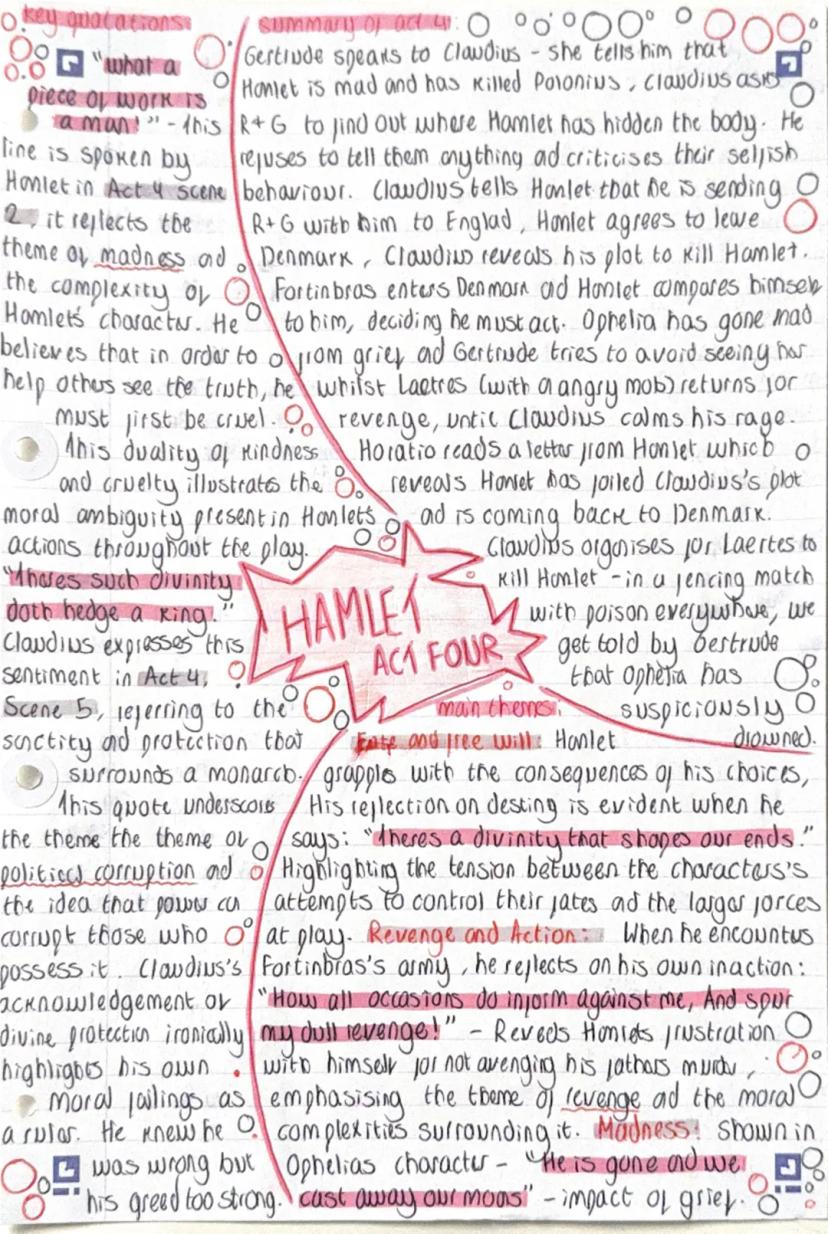 key quotations:
"what a
piece of work is
a man!" - this
line is spoken by
Hamlet in Act 4 scene
2, it reflects the
theme of madness ad
the complexity of
Hamlets character. He
believes that in order to
help others see the truth, he
must first be cruel.
This duality of kindness
and cruelty illustrates the
moral ambiguity present in Hamlets
actions throughout the play.
"Theres such divinity
doth hedge a king."
Claudius expresses this
sentiment in Act 4,
Scene 5, referring to the
sanctity ad protection that
surrounds a monarch.
This quote underscores
the theme the theme of
political corruption ad
the idea that power can
corrupt those who
possess it. Claudius's
acknowledgement of
divine protection ironically
highlights his own
moral failings as
a ruler. He knew he
was wrong but
his greed too strong.
summary of act 4:
Gertrude speaks to Claudius - she tells him that
Hamlet is mad and has killed Polonius, Claudius asks
R+G to find out where Hamlet has hidden the body. He
refuses to tell them anything ad criticises their selfish
behaviour. Claudius tells Hamlet that he is sending
R+G with him to Englad, Hamlet agrees to leave
Denmark, Claudius reveals his plot to kill Hamlet.
Fortinbras enters Denmark ad Hamlet compares himself
to him, deciding he must act. Ophelia has gone mad
from grief ad Gertrude tries to avoid seeing her
whilst Laetres (with a angry mob) returns for
revenge, until Claudius calms his rage.
Horatio reads a letter from Hamlet which
reveals Hamlet has foiled Claudius's plot
ad is coming back to Denmark.
Claudius organises for Laertes to
kill Hamlet - in a fencing match
with poison everywhere, we
get told by Gertrude
that Ophelia has
suspiciously
drowned.
HAMLET
ACT FOUR
main themes:
Fate and free will: Hamlet
grapples with the consequences of his choices,
His reflection on destiny is evident when he
says: "Theres a divinity that shapes our ends."
Highlighting the tension between the characters's
attempts to control their fates ad the larger forces
at play. Revenge and Action: When he encounters
Fortinbras's army, he reflects on his own inaction:
"How all occasions do inform against me, And spur
my dull revenge!" - Reveals Hamlets frustration
with himself for not avenging his fathers murder,
emphasising the theme of revenge ad the moral
complexities surrounding it. Madness: Shown in
Ophelias character - "He is gone ad we
cast away our moans" - impact of grief.